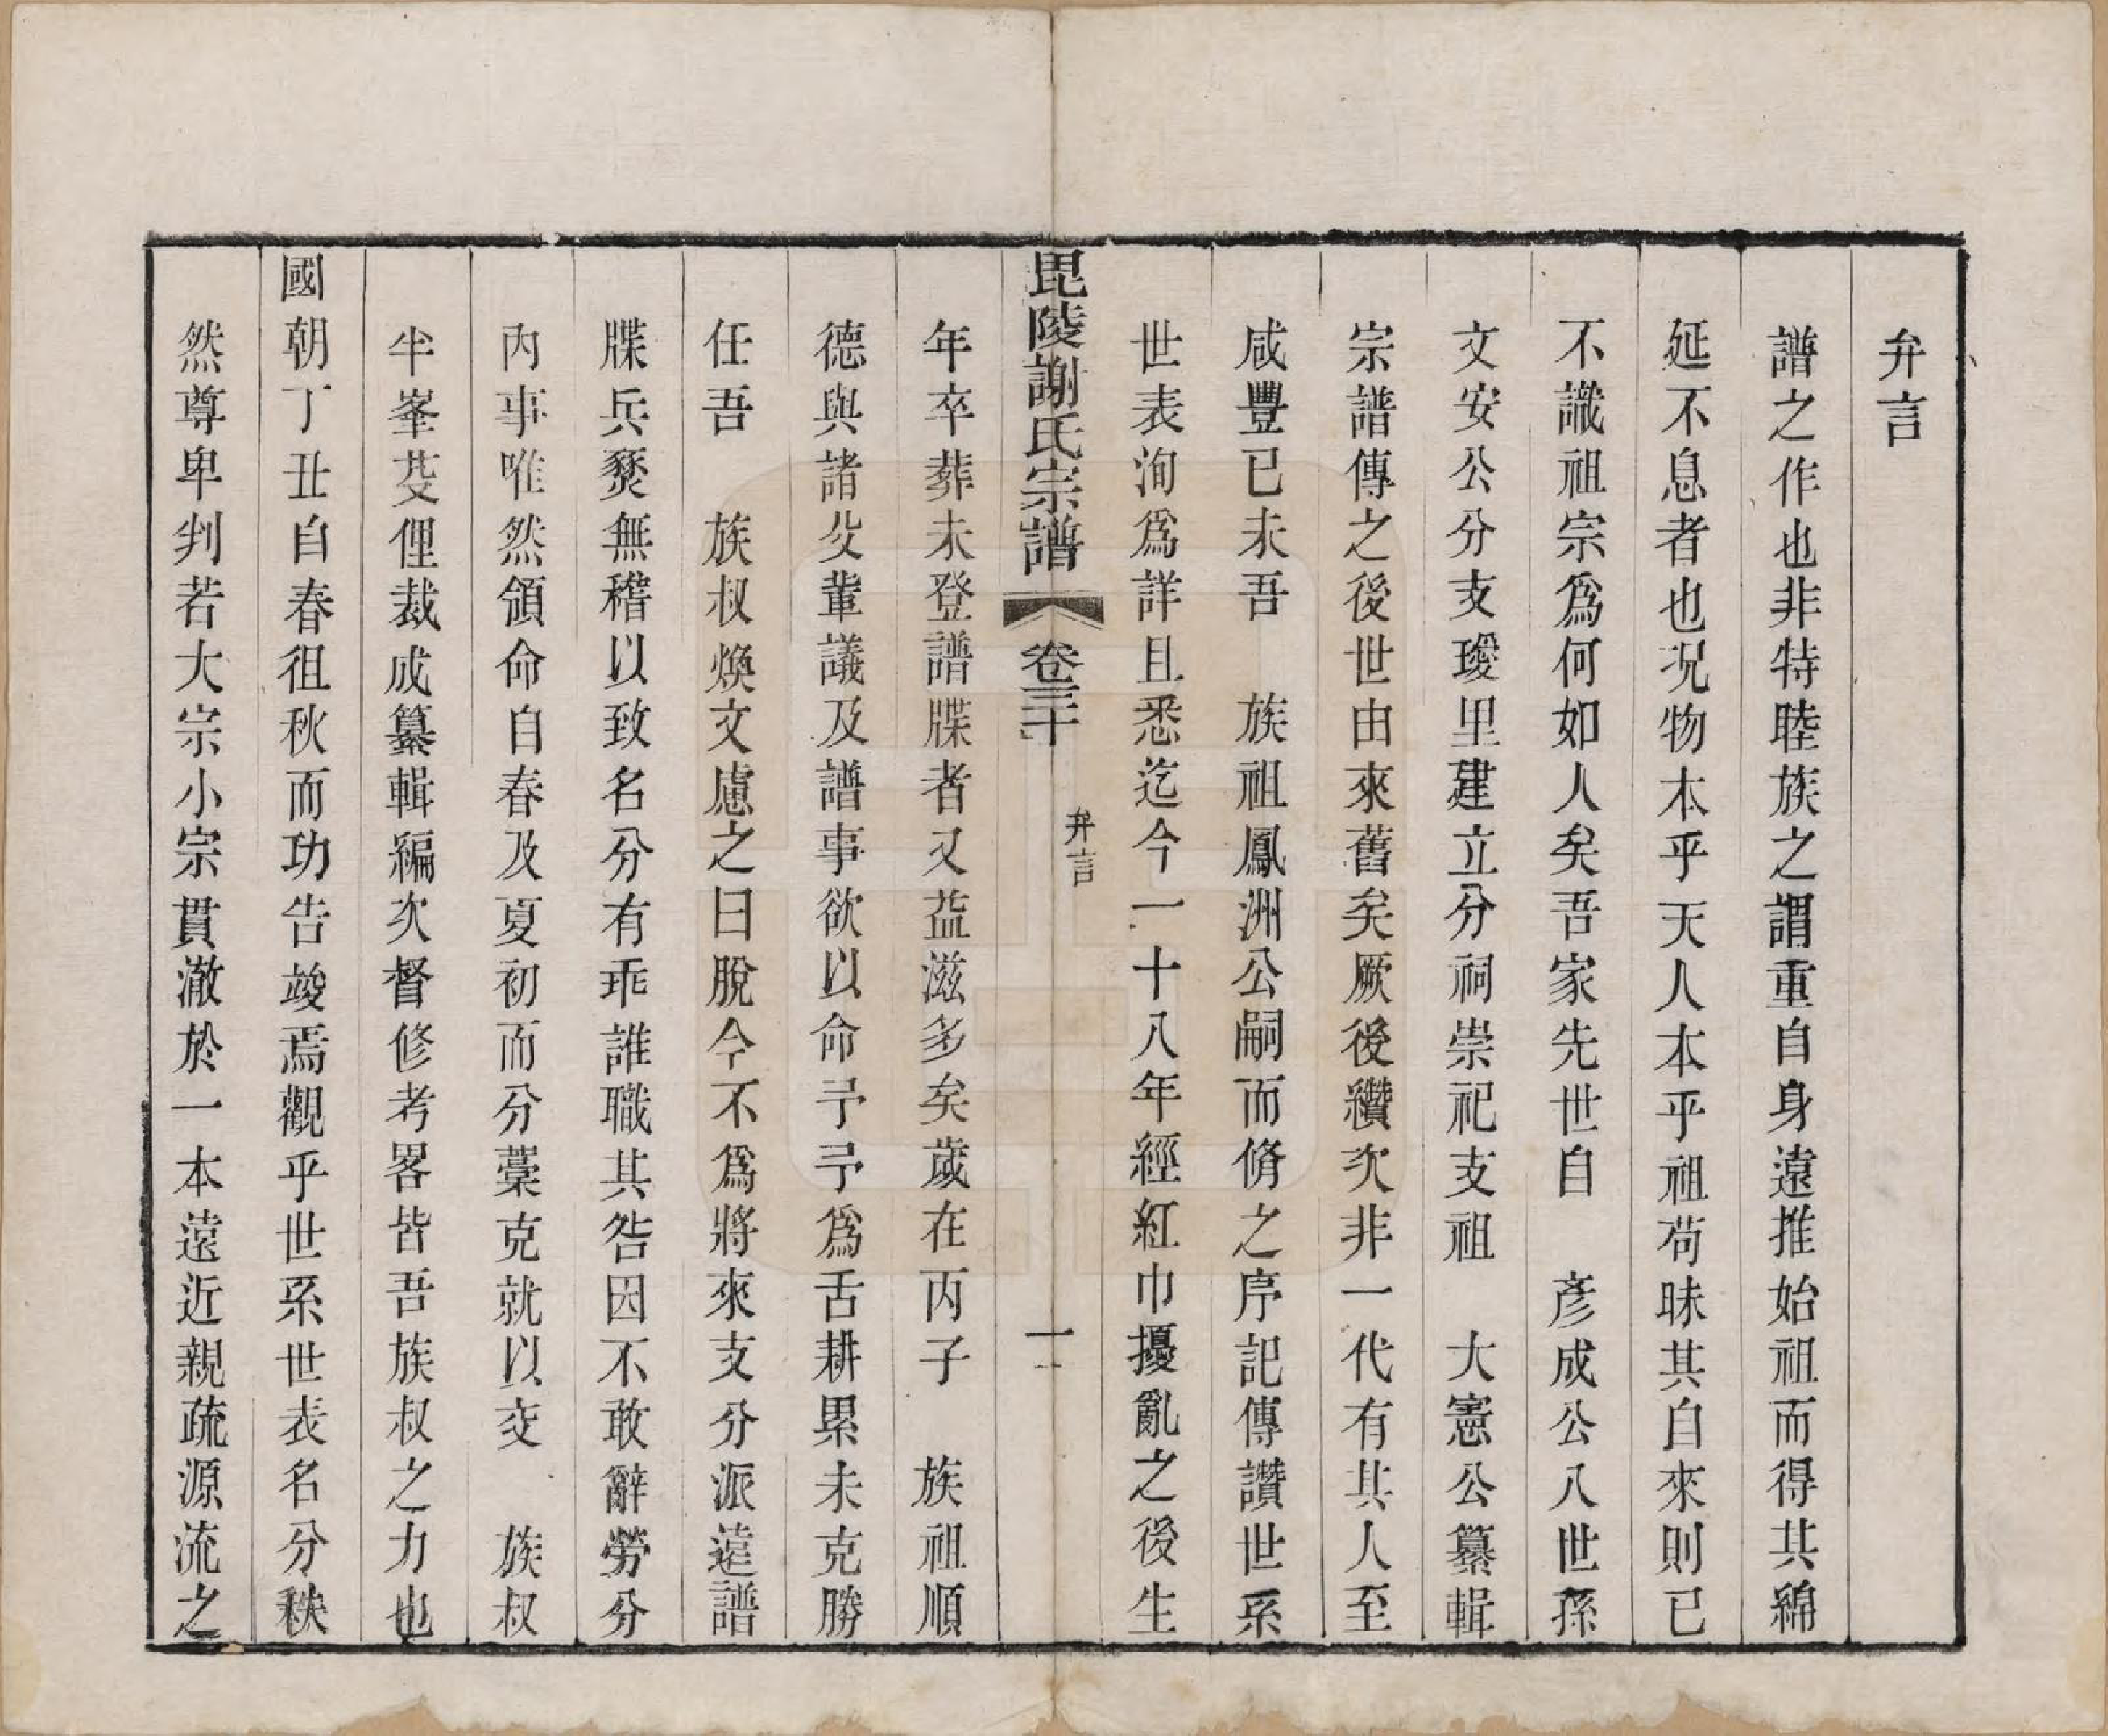 弁言
譜之作也非特睦族之謂重自身遠推始祖而得共綿
延不息者也况物本乎天人本乎祖苟昧其自來則已
不識祖宗爲何如人矣吾家先世自　彥成公八世孫
文安公分支璦里建立分祠崇祀支祖　大憲公纂輯
宗譜傳之後世由來舊矣厥後纘次非一代有其人至
咸豐已未吾　族祖鳳洲公嗣而脩之序記傳讚世系
世表洵爲詳且悉迄今一十八年經紅巾擾亂之後生
毘陵謝氏宗譜　卷三十　弁言　一
年卒葬未登譜牒者又益滋多矣歲在丙子　族祖順
德與諸父輩議及譜事欲以命予予爲舌耕累未克勝
任吾　族叔煥文慮之曰脫今不爲將來支分派遠譜
牒兵燹無稽以致名分有乖誰職其咎因不敢辭勞分
內事唯然領命自春及夏初而分藁克就以交　族叔
半峯芟俚裁成纂輯編次督修考畧皆吾族叔之力也
國朝丁丑自春徂秋而功告竣焉觀乎世系世表名分秩
然尊卑判若大宗小宗貫澈於一本遠近親疏源流之